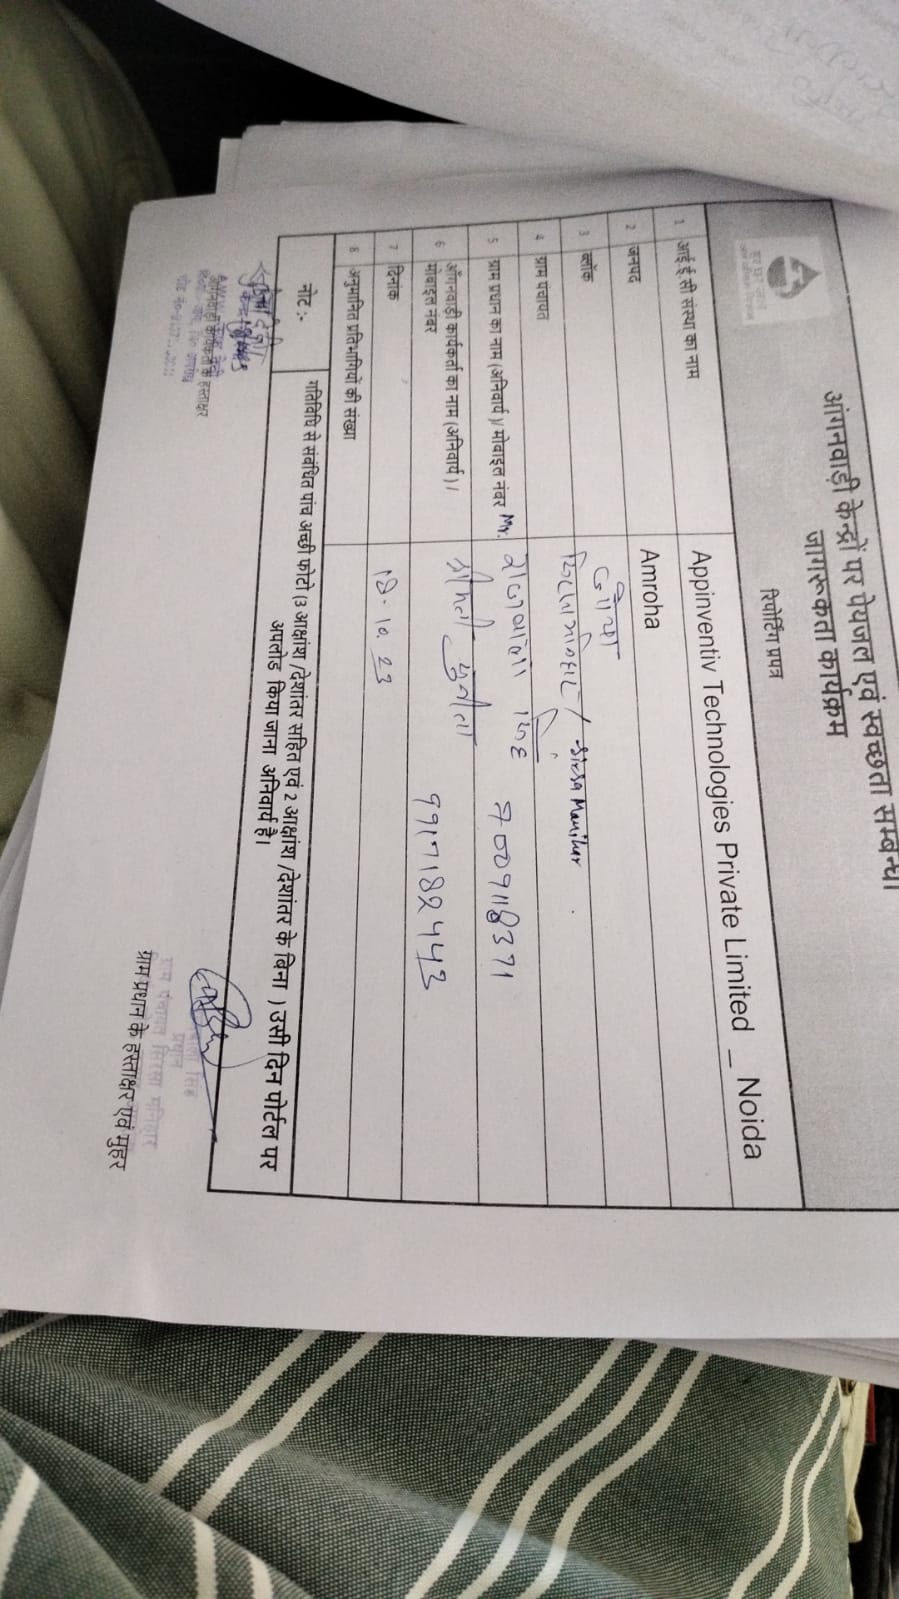 हर घर जल
आंगनवाड़ी केन्द्रों पर पेयजल एवं स्वच्छता सम्बन्धी
जागरुकता कार्यक्रम
रिपोर्टिंग प्रपत्र
1 आई.ई.सी संस्था का नाम Appinventiv Technologies Private Limited _ Noida
2 जनपद Amroha
3 ब्लॉक जोया
4 ग्राम पंचायत सिरसा मनिहार / Sirsa Manihar
5 ग्राम प्रधान का नाम (अनिवार्य )/ मोबाइल नंबर Mr. सिंह
6 आँगनवाड़ी कार्यकर्ता का नाम (अनिवार्य ) / श्रीमती सुनीता
मोबाइल नंबर 9917182443
7 दिनांक 18.10.23
8 अनुमानित प्रतिभागियों की संख्या
नोट :- गतिविधि से संबंधित पांच अच्छी फोटो (3 आक्षांश /देशांतर सहित एवं 2 आक्षांश /देशांतर के बिना ) उसी दिन पोर्टल पर
अपलोड किया जाना अनिवार्य है।
सिंह
प्रधान
ग्राम पंचायत सिरसा मनिहार
आँगनवाड़ी कार्यकर्ता के हस्ताक्षर
ग्राम प्रधान के हस्ताक्षर एवं मुहर